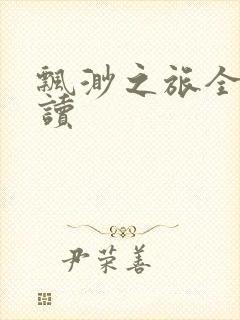 飄渺之旅全
讀
尹荣善